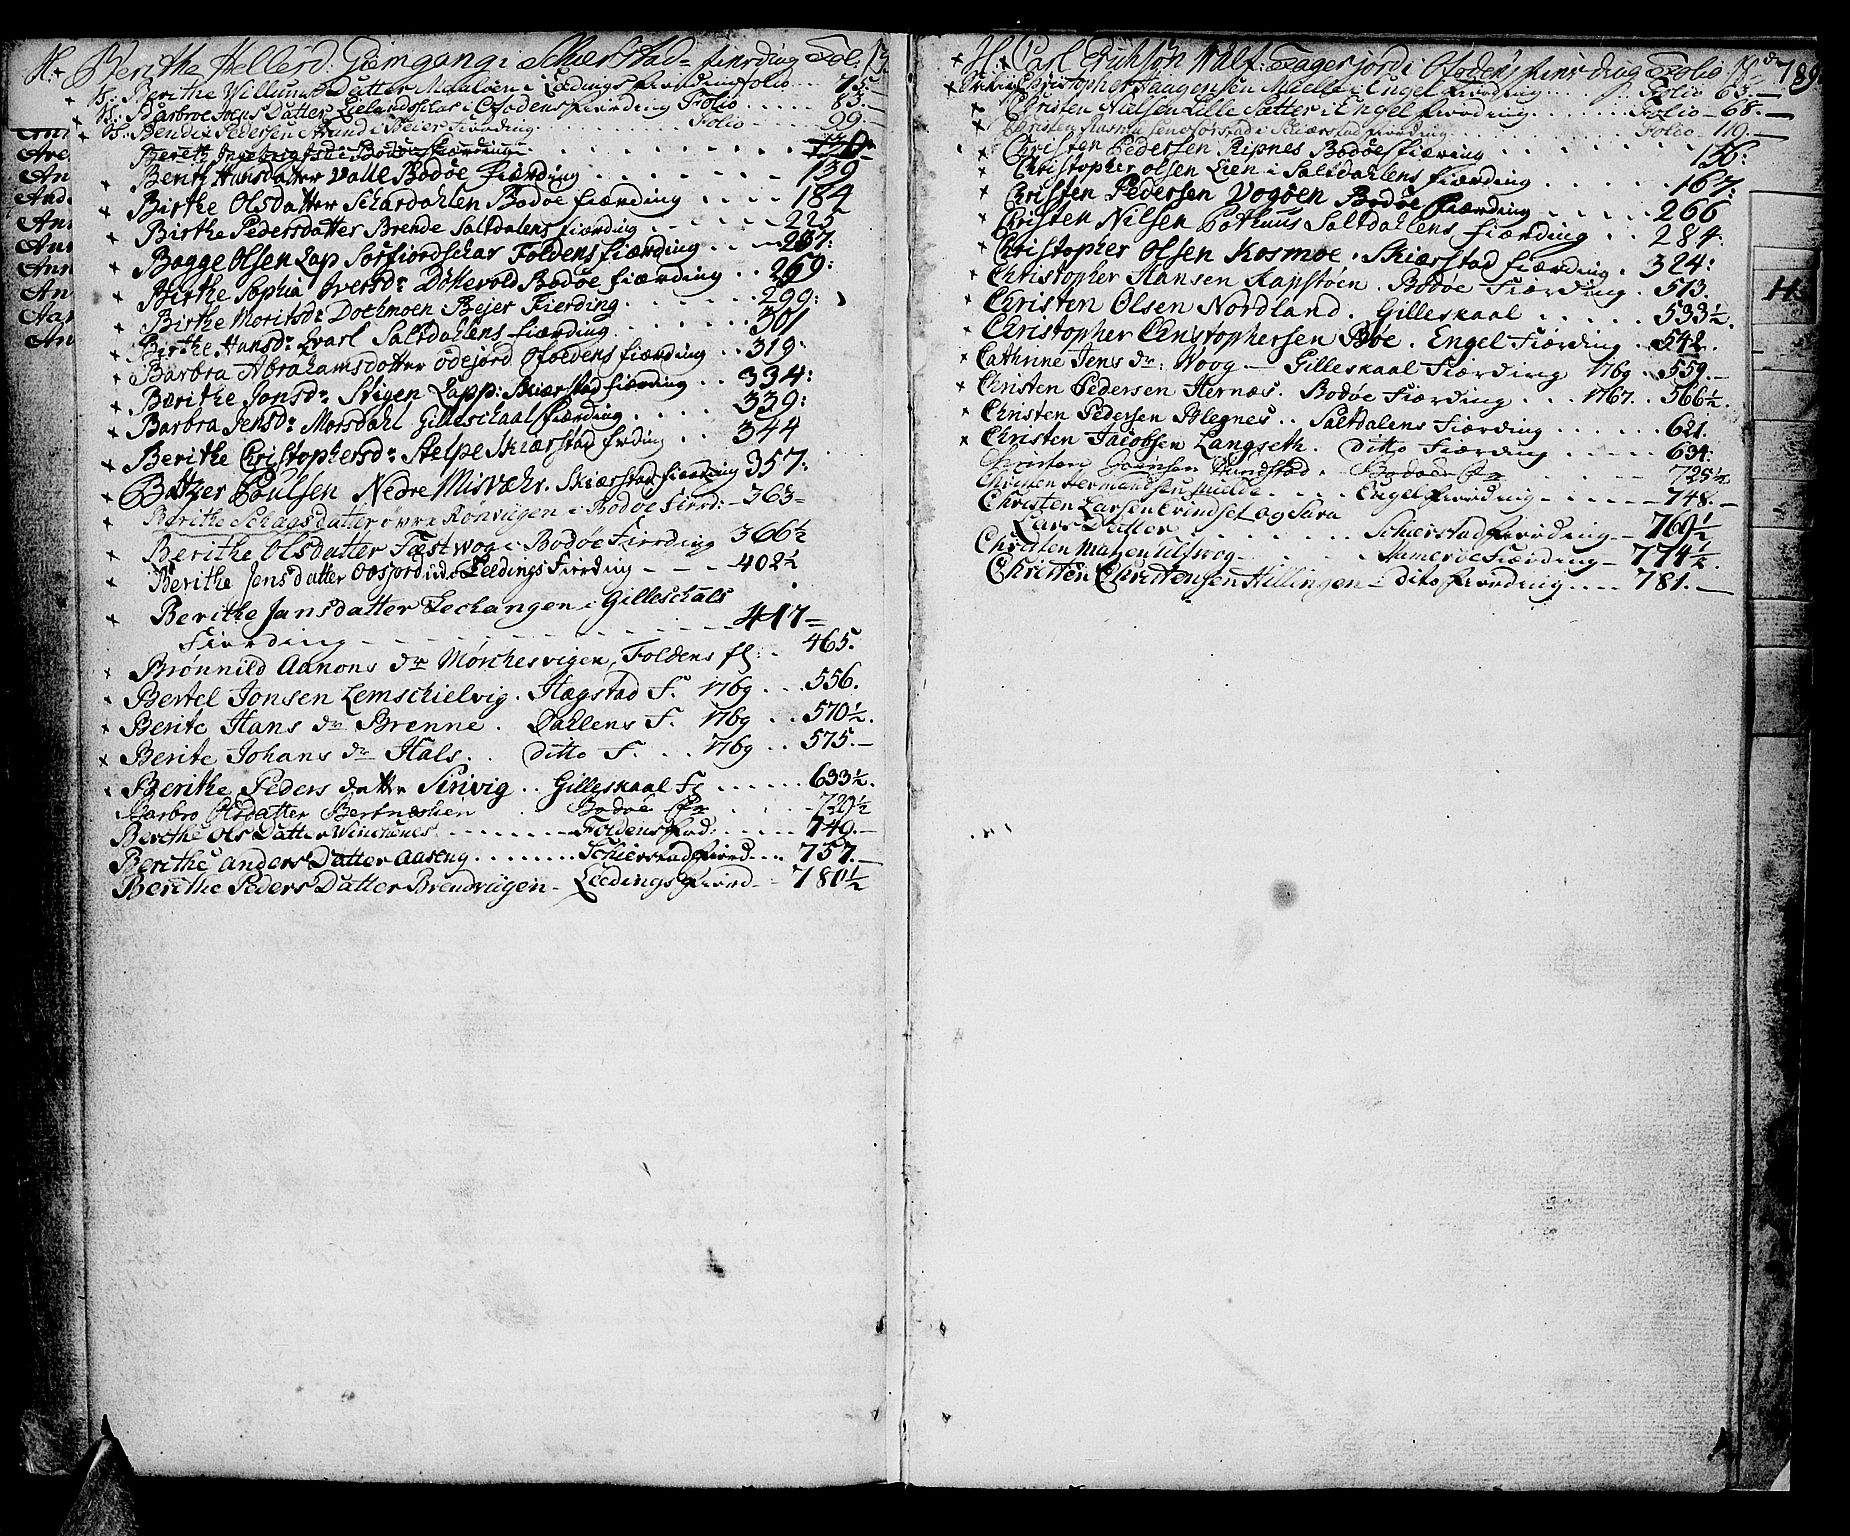 H. Berithe Pellersd. Giemgang i Schierstad fierding Fol. 13
H: Berithe Willums Datter Maaløen i Leedings fierding Folio .. 75.
H: Barbroe Joens Datter Lielandsschar i Ofodens fierding Folio .... 83.
H: Bendix Pedersen Strand i Beier Fierding Folio - 99.
Berith Ingebrigtsd: Bodøe Fierding
Berith Hansdatter Valle Bodøe fiærding . . . 139
Birthe Olsdatter Schardahlen Bodøe fiærding .... 184
Birthe Pedersdatter Brende Saltdalens fiærding . . . 225
Bagge Olsen Lap Sørfiordschar Foldens fiærding
Birthe Sophia Iversd: Døhevold Bodøe fiærding .. 269:
Birthe Moritsd: Dochmoen Bejer Fierding . . . 299:
Berthe Hansd: Evarl Saltdahlens fiærding . . . 301
Barbra Abrahamsdatter Ødejord Ofoldens fiærding .. 319:
Berithe Jonsd: Stigen Lapp: Skiærstad fiærding .. 334:
Barbra Jensd: Morsdahl Gilleschaal fiærding . . . 339:
Berithe Christophersd: Stelpe Skiærstad frding .. 344
Baltzer Poulsen Nedre Misvæhr. Skiærstad fiærding 357:
Berithe Schagsdatter øvre Rønvugen i Bodøe Fierd: - 363 =
Berithe Olsdatter Fæstwog i Bodøe Fierding 366½
Berithe Jensdatter Oosjord i Leedings Fierding - - - 402½
Berithe Jansdatter Lechangen i Gilleschals
Fierding - - - - 417 =
Brønnild Aanons dr Mørchesvigen, Foldens f: . 465.
Bertel Jonsen Lemschielvig . Hægstad F. 1769 ... 556.
Berite Hans dr Brenne . Dahlens F. 1769 .. 570½.
Berite Johans dr Hals . . Ditto F. .. 1769 .. 575.-
Berithe Peders datter Sirivig .. Gilleskaal F: ..... 633½.
Barbro Olsdatter Bertneshien Bodøe Fr . . . . 729½
Berithe Ols Datter Winchenes ........ Foldens fird: ..... 749.-
Berithe Anders Datter Aaseng ........ Schierstad fierd.... 757.-
Berithe Peders Datter Brendvugen - Leedings Fierd - 780½
Ann
Are
An
And
An
Ann
Ann
An
Aa
An
H. Carl Erichsøn Walf. Fagerjord i Ofoden fierding Folio 789
Christopher Haagensen Maelle i Engel fierding ... Folio 63.-
Christen Nielsen Lille Sætter i Engel fierding ...... Folio - 68.-
Christen Rasmusen Førstad i Schierstad fierding Folio - 119.-
Christen Pedersen Ripnes Bodøe fiæring . . . 156:
Christopher Olsen Lien i Saltdahlens fiærding . . . 167:
Christen Pedersen Vogøen Bodøe fiærding ..... 266
Cristen Nilsen Pothuus Saltdallens fiærding .. 284:
Christopher Olsen Kosmoe . Skiærstad fiærding . 324:
Christopher Hansen Rapstøen . Bodøe Fiærding . 513.
Christen Olsen Nordland . Gilleskaal ..... 533½.
Christopher Christophersen Bøe . Engel Fiærding . 542.
Cathrine Jens dr: Woog - Gilleskaal Fiærding 1769 . 559.-
Christen Pedersen Hernæs . Bodøe Fiærding ... 1767 .. 566½.
Christen Pedersen Alegnes .. Saltdalens Fiærding ..... 621.
Christen Jacobsen Langseth . Ditto Fiærding ..... 634:
Christen Joensen Bodøe Fr 725½
Christen Hermandsen Mulde .... Engel fierding ...... 748.-
Christen Larsen Evindset og Sara
Lars Datter Schierstad fierding - 769½
Christen Matzen Tilswog - . . . Sumerøe Fierding - 774½.
Christen Christensen Hillingen - i dito fierding .... 781.-